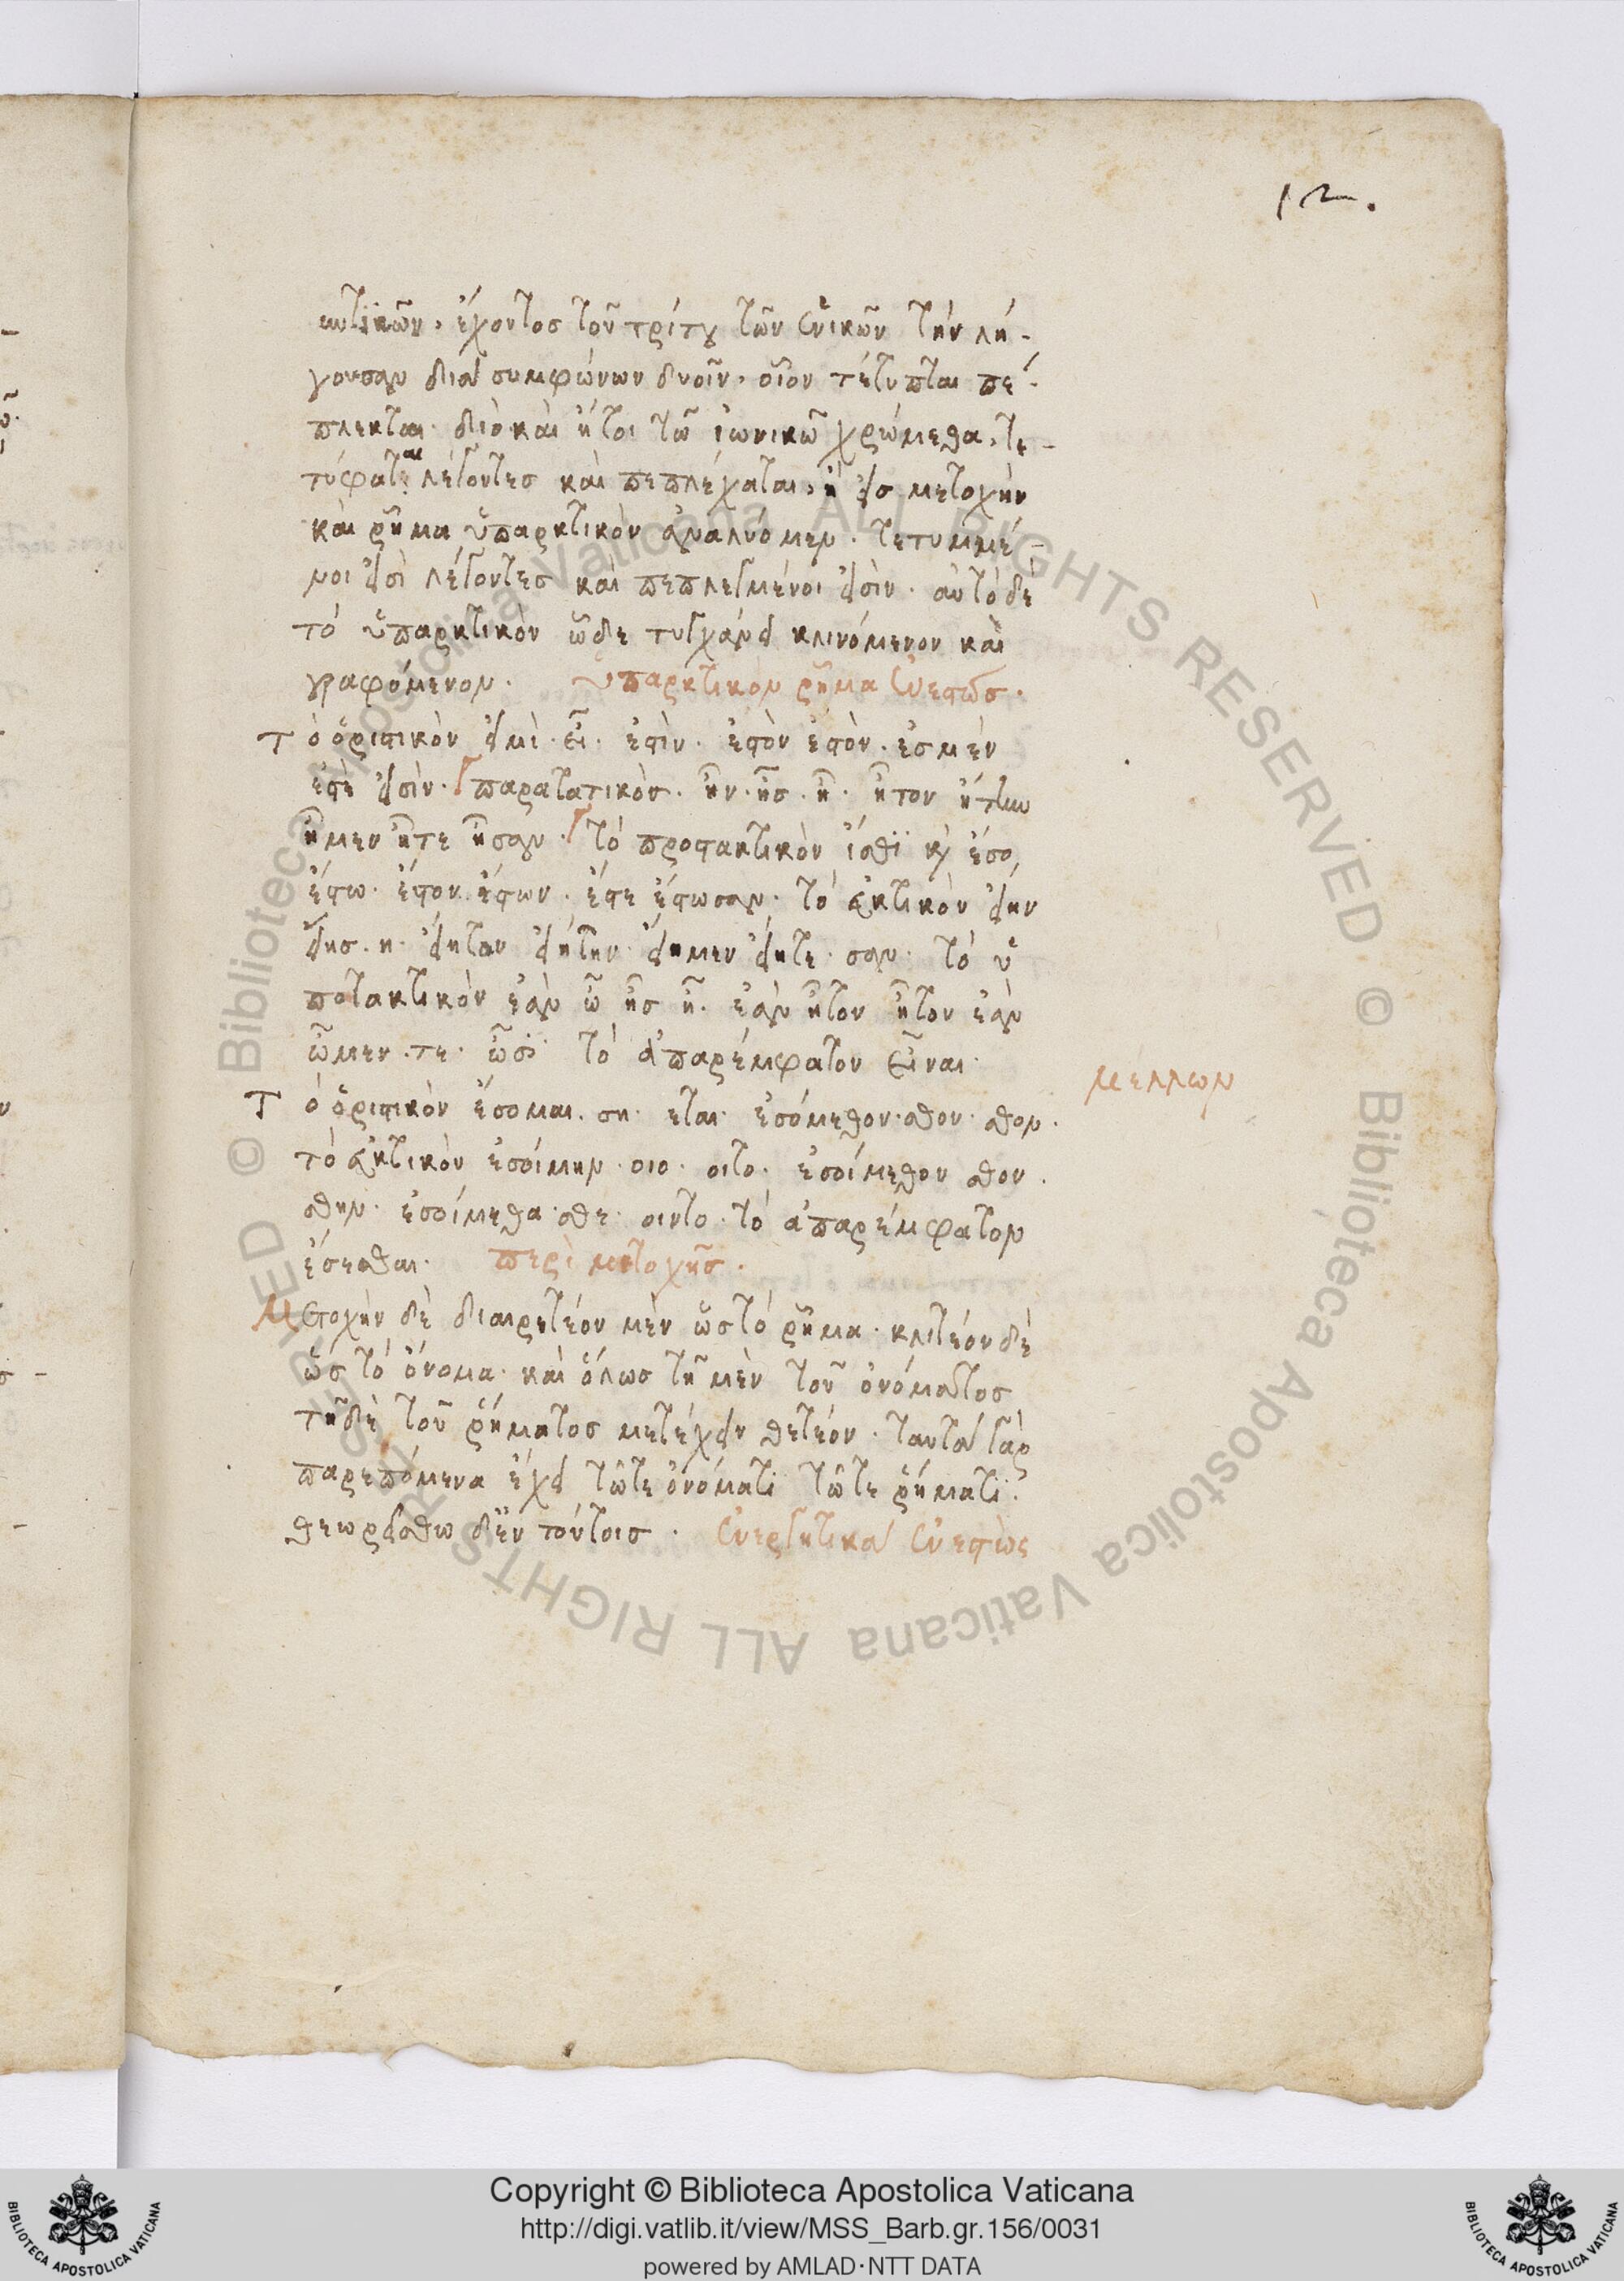 12.
υντικῶν. ἔχοντος τοῦ τρίτου τῶν ἑνικῶν τὴν λή-
γουσαν διὰ συμφώνων δυοῖν. οἷον τέτυπται πέ-
πλεκται. διὸ καὶ ἤτοι τῷ ἰωνικῷ χρώμεθα. τε-
τύφαται λέγοντες καὶ πεπλέχαται. ἢ εἰς μετοχὴν
καὶ ῥῆμα ὑπαρκτικὸν ἀναλύομεν. τετυμμέ-
νοι εἰσὶ λέγοντες καὶ πεπλεγμένοι εἰσίν. αὐτὸ δὲ
τὸ ὑπαρκτικὸν ὧδε τυγχάνει κλινόμενον καὶ
γραφόμενον. ὑπαρκτικὸν ῥῆμα ἐνεστώς.
Τὸ ὁριστικὸν εἰμὶ. εἶ. ἐστὶν. ἐστὸν ἐστὸν. ἐσμὲν
ἐστὲ εἰσὶν. παρατατικὸς. ἦν. ἦς. ἦ. ἦτον ἤτην
ἦμεν ἦτε ἦσαν. τὸ προστακτικὸν ἴσθϊ καὶ ἔσο,
ἔστω. ἔστον ἔστων. ἔστε ἔστωσαν. τὸ εὐκτικὸν εἴην
εἴης. η. εἴητον εἰήτην. εἴημεν εἴητε. σαν. τὸ ὑ
ποτακτικὸν ἐὰν ὦ ᾖς ᾖ. ἐὰν ἦτον ἦτον ἐὰν
ὦμεν. τε. ὦσϊ. τὸ ἀπαρέμφατον εἶναι.
μέλλων
Τὸ ὁριστικὸν ἔσομαι. ση. εται. ἐσόμεθον. σθον. σθον.
τὸ εὐκτικὸν ἐσοίμην. οιο. οιτο. ἐσοίμεθον σθον.
σθην. ἐσοίμεθα. σθε. οιντο. τὸ ἀπαρέμφατον
ἔσεσθαι. περὶ μετοχῆς.
Μετοχὴν δὲ διαιρετέον μὲν ὡς τὸ ῥῆμα. κλιτέον δὲ
ὡς τὸ ὄνομα. καὶ ὅλως τῆ μὲν τοῦ ὀνόματος
τῆ δὲ τοῦ ῥήματος μετέχειν θετέον. ταυτὰ γὰρ
παρεπόμενα ἔχει τῶτε ὀνόματϊ τῶτε ῥήματϊ.
θεωρείσθω δ' ἐν τούτοις. ἐνεργητικὰ ἐνεστὼς
Copyright © Biblioteca Apostolica Vaticana
http://digi.vatlib.it/view/MSS_Barb.gr.156/0031
powered by AMLAD·NTT DATA